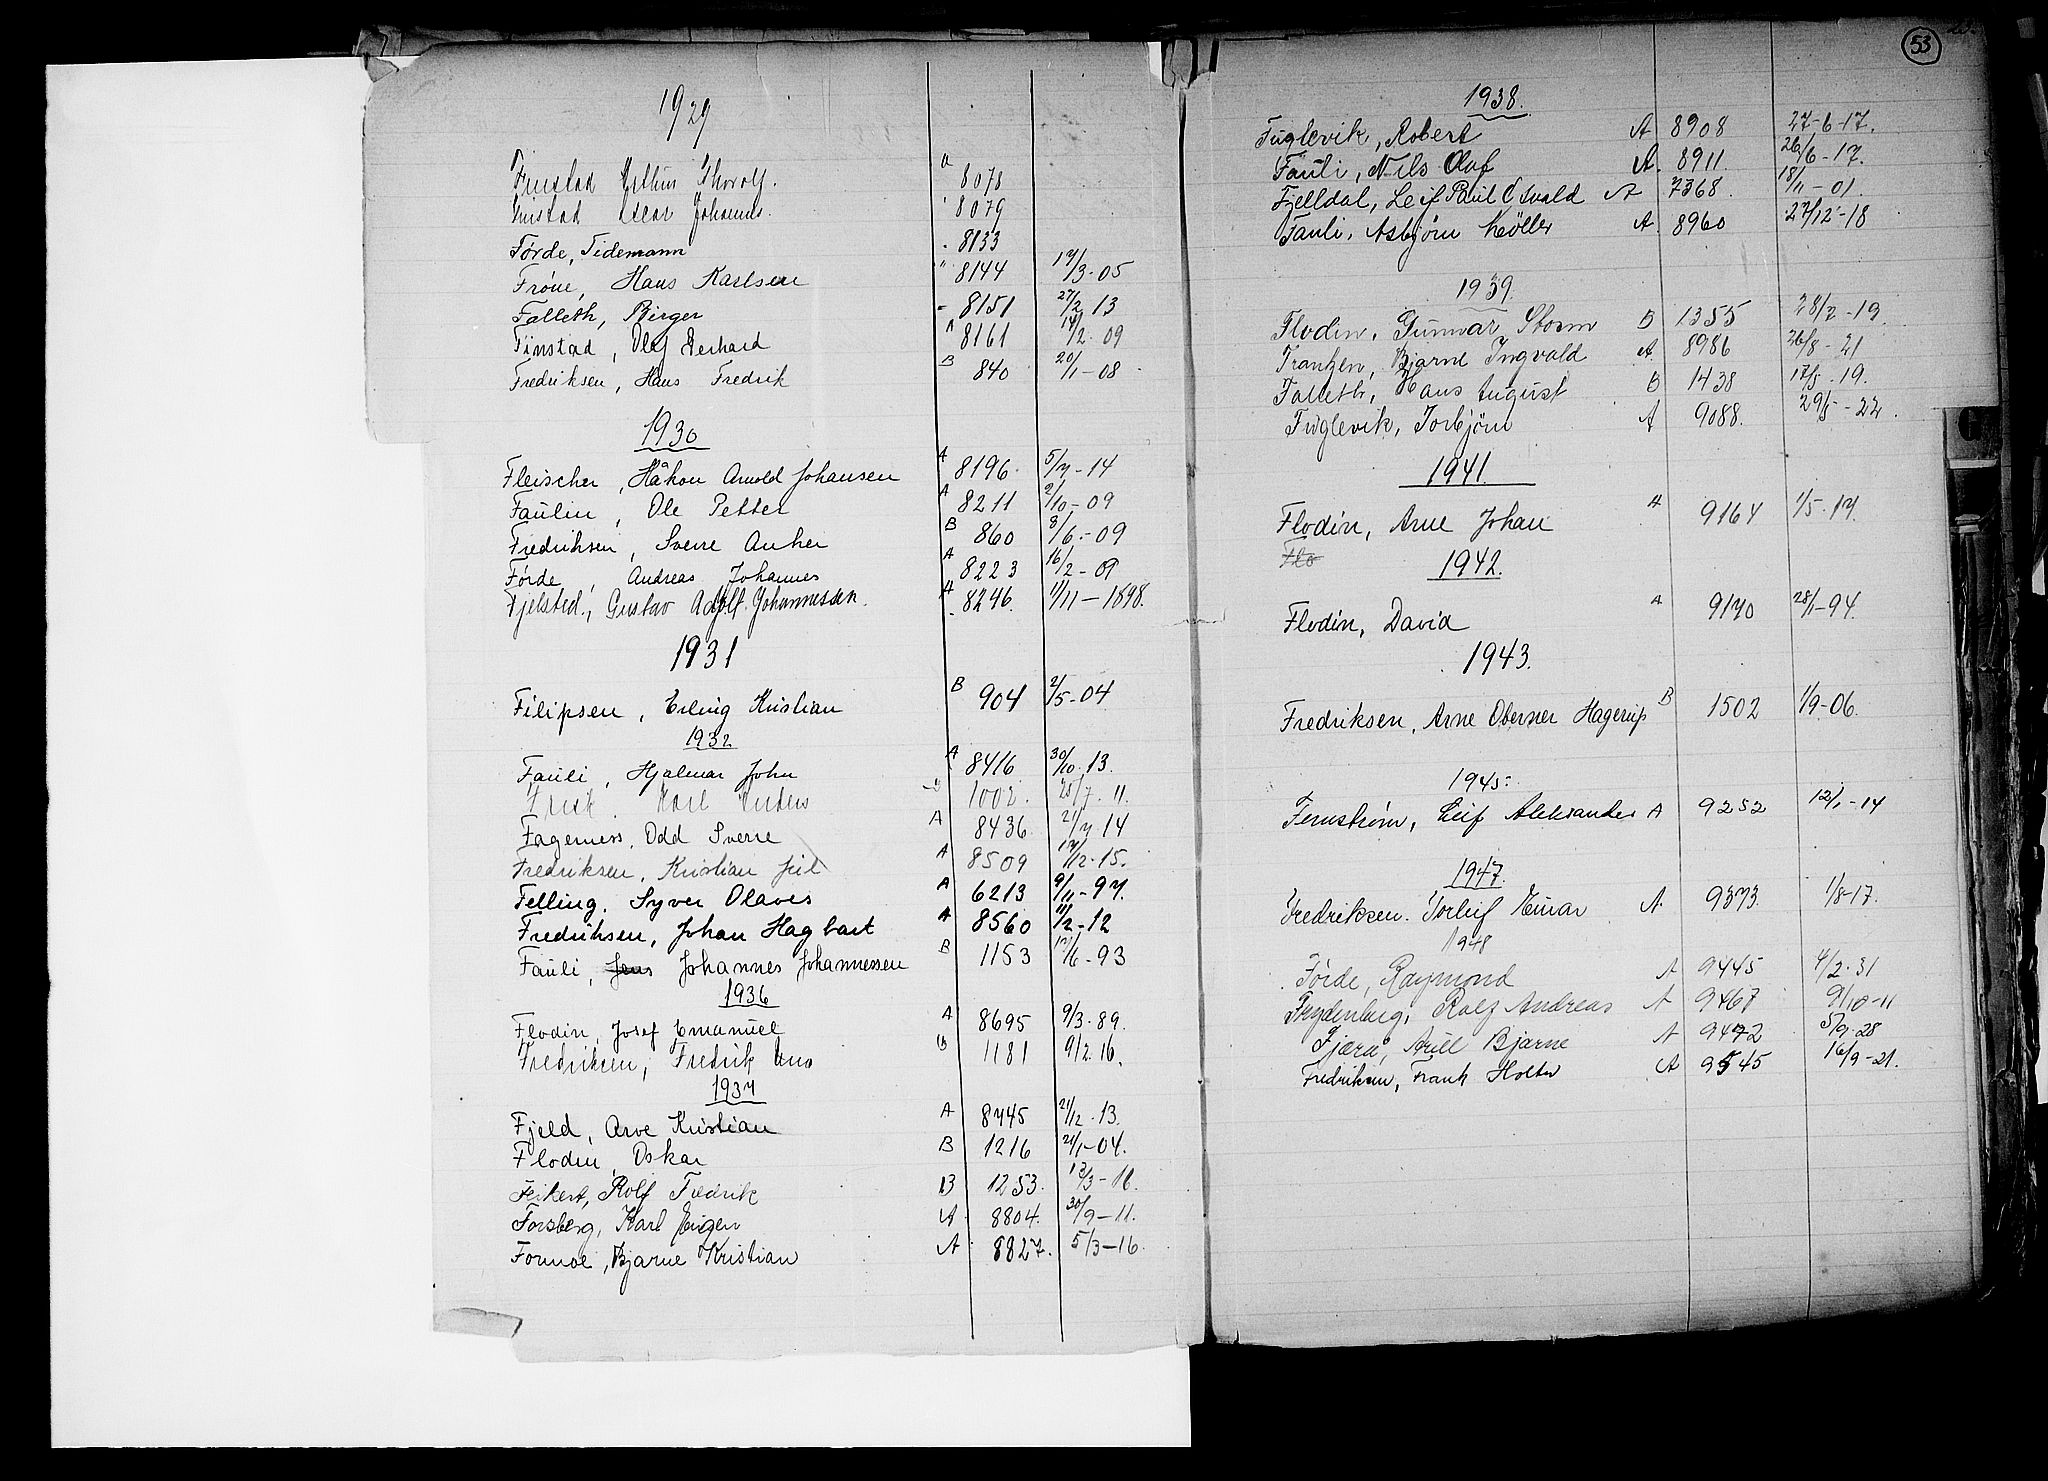 1929
Finstad Arthur Thorolf. A 8078
Finstad Johannes. " 8079
Førde, Tidemann - 8133
Frøne, Hans Karlsen " 8144 17/3-05
Falleth, Birger - 8151 27/2 13
Finstad, Olaf Gerhard A 8161 14/2-09
Fredriksen, Hans Fredrik B 840 20/1-08
1930
Fleischer, Håkon Arnold Johansen A 8196 5/7-14
Faulin, Ole Petter A 8211 2/10-09
Fredriksen, Sverre Anker B 860 8/6-09
Førde, Andreas Johannes A 8223 16/2-09
Fjelsted, Gustav Adolf Johannessen. A 8246. 11/11-1898.
1931
Filipsen, Erling Kristian B 904 2/5-04
1932
Fauli, Hjalmar John A 8416 30/10.13.
Karl Anders 1002. 25/7.11.
Fagerness, Odd Sverre A 8436 21/7 14
Fredriksen, Kristian Juel A 8509 17/12-15.
Felling, Syver Olaves A 6213 9/11-97.
Fredriksen, Johan Hagbart A 8560 11/2-12
Fauli, Jens Johannes Johannessen B 1153 12/6-93
1936
Flodin, Josef Emanuel A 8695 9/3-89.
Fredriksen, Fredrik B 1181 9/2.16.
1937
Fjeld, Arve Kristian A 8745 21/12.13.
Flodin, Oskar B 1216 21/1-04.
Feikert, Rolf Fredrik B 1253. 13/3-16.
Forsberg, Karl Eugen A 8804. 30/9-11.
Formoe, Bjarne Kristian A 8827. 5/3-16.
53
1938.
Fuglevik, Robert A 8908 27-6-17.
Fauli, Nils Olaf A. 8911. 26/6-17.
Fjelldal, Leif Paul Osvald A 7368. 18/11-01.
Fauli, Asbjørn Møller A. 8960 27/12-18
1939.
Flodin, Gunnar Storm B 1355 28/2-19.
Frantzen, Bjarne Ingvald A. 8986 26/8-21
Falleth, Hans August B 1438 17/5.19.
Fuglevik, Torbjørn A 9088. 29/5-22.
1941.
Flodin, Arne Johan A 9164 1/5-17.
Flo
1942.
Flodin, David A 9170 28/1-94.
1943.
Fredriksen, Arne Oberner Hagerup B 1502 1/9-06.
1945.
Fernstrøm, Leif Aleksander A 9252 12/1-14
1947.
Fredriksen. Torleif Einar A. 9373. 1/8-17.
1948
Førde, Raymond A 9445 4/2.31
Frydenberg, Rolf Andreas A 9467 9/10-11
Fjæra, Arill Bjarne A 9472 5/9.28
Fredriksen, Frank Holter A 9545 16/9-21.